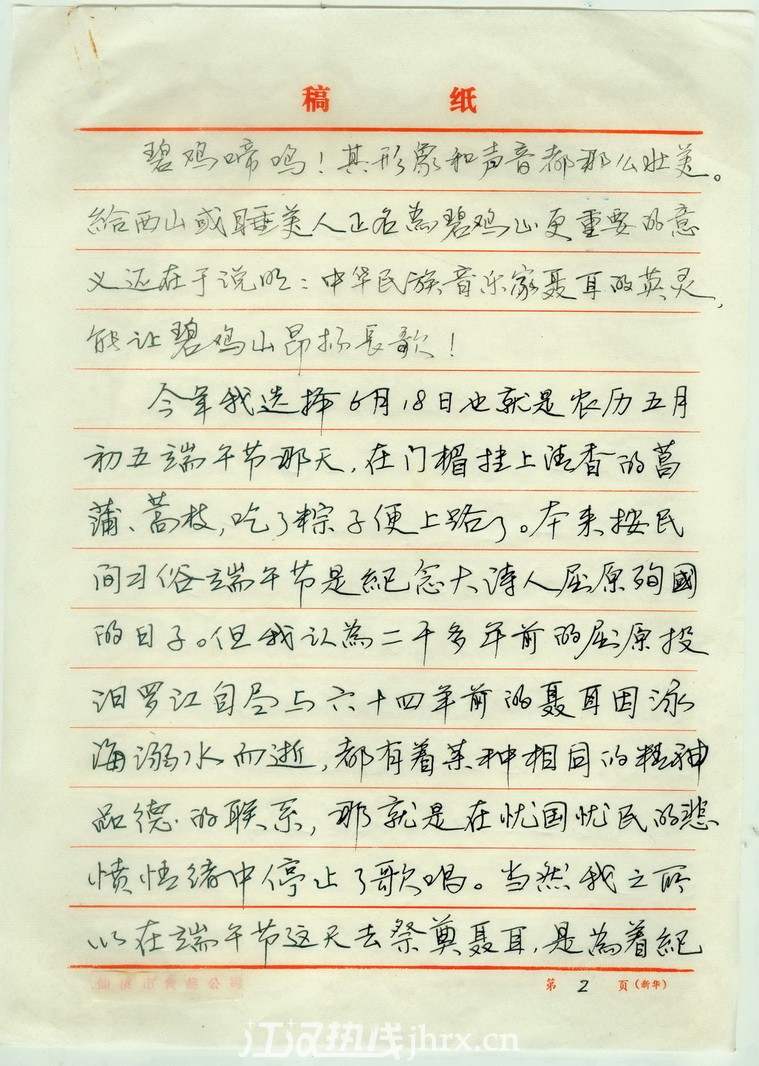 稿 纸
碧鸡啼鸣！其形象和声音都那么壮美。
給西山或睡美人正名為碧鸡山更重要的意
义还在于说明：中华民族音乐家聂耳的英灵，
能让碧鸡山昂扬長歌！
今年我选择6月18日也就是农历五月
初五端午节那天，在门楣挂上清香的菖
蒲、蒿枝，吃了粽子便上路了。本来按民
间习俗端午节是紀念大诗人屈原殉國
的日子。但我认為二千多年前的屈原投
汨罗江自尽与六十四年前的聂耳因泳
海溺水而逝，都有着某种相同的精神
品德的联系，那就是在忧国忧民的悲
愤情绪中停止了歌唱。当然我之所
以在端午节这天去祭奠聂耳，是為着紀
第 2 页（新华）
江汉热线jhrx.cn